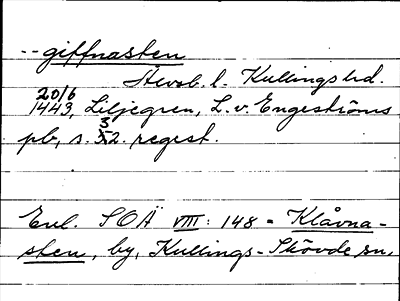 --giffnasten
Älvsb. l. Kullings hd.
20/6
1443, Liljegren, L. v. Engeströms
pb, s. 32. regest.
Enl. SOÄ VIII: 148 = Klåvna-
sten, by, Kullings-Skövde sn,